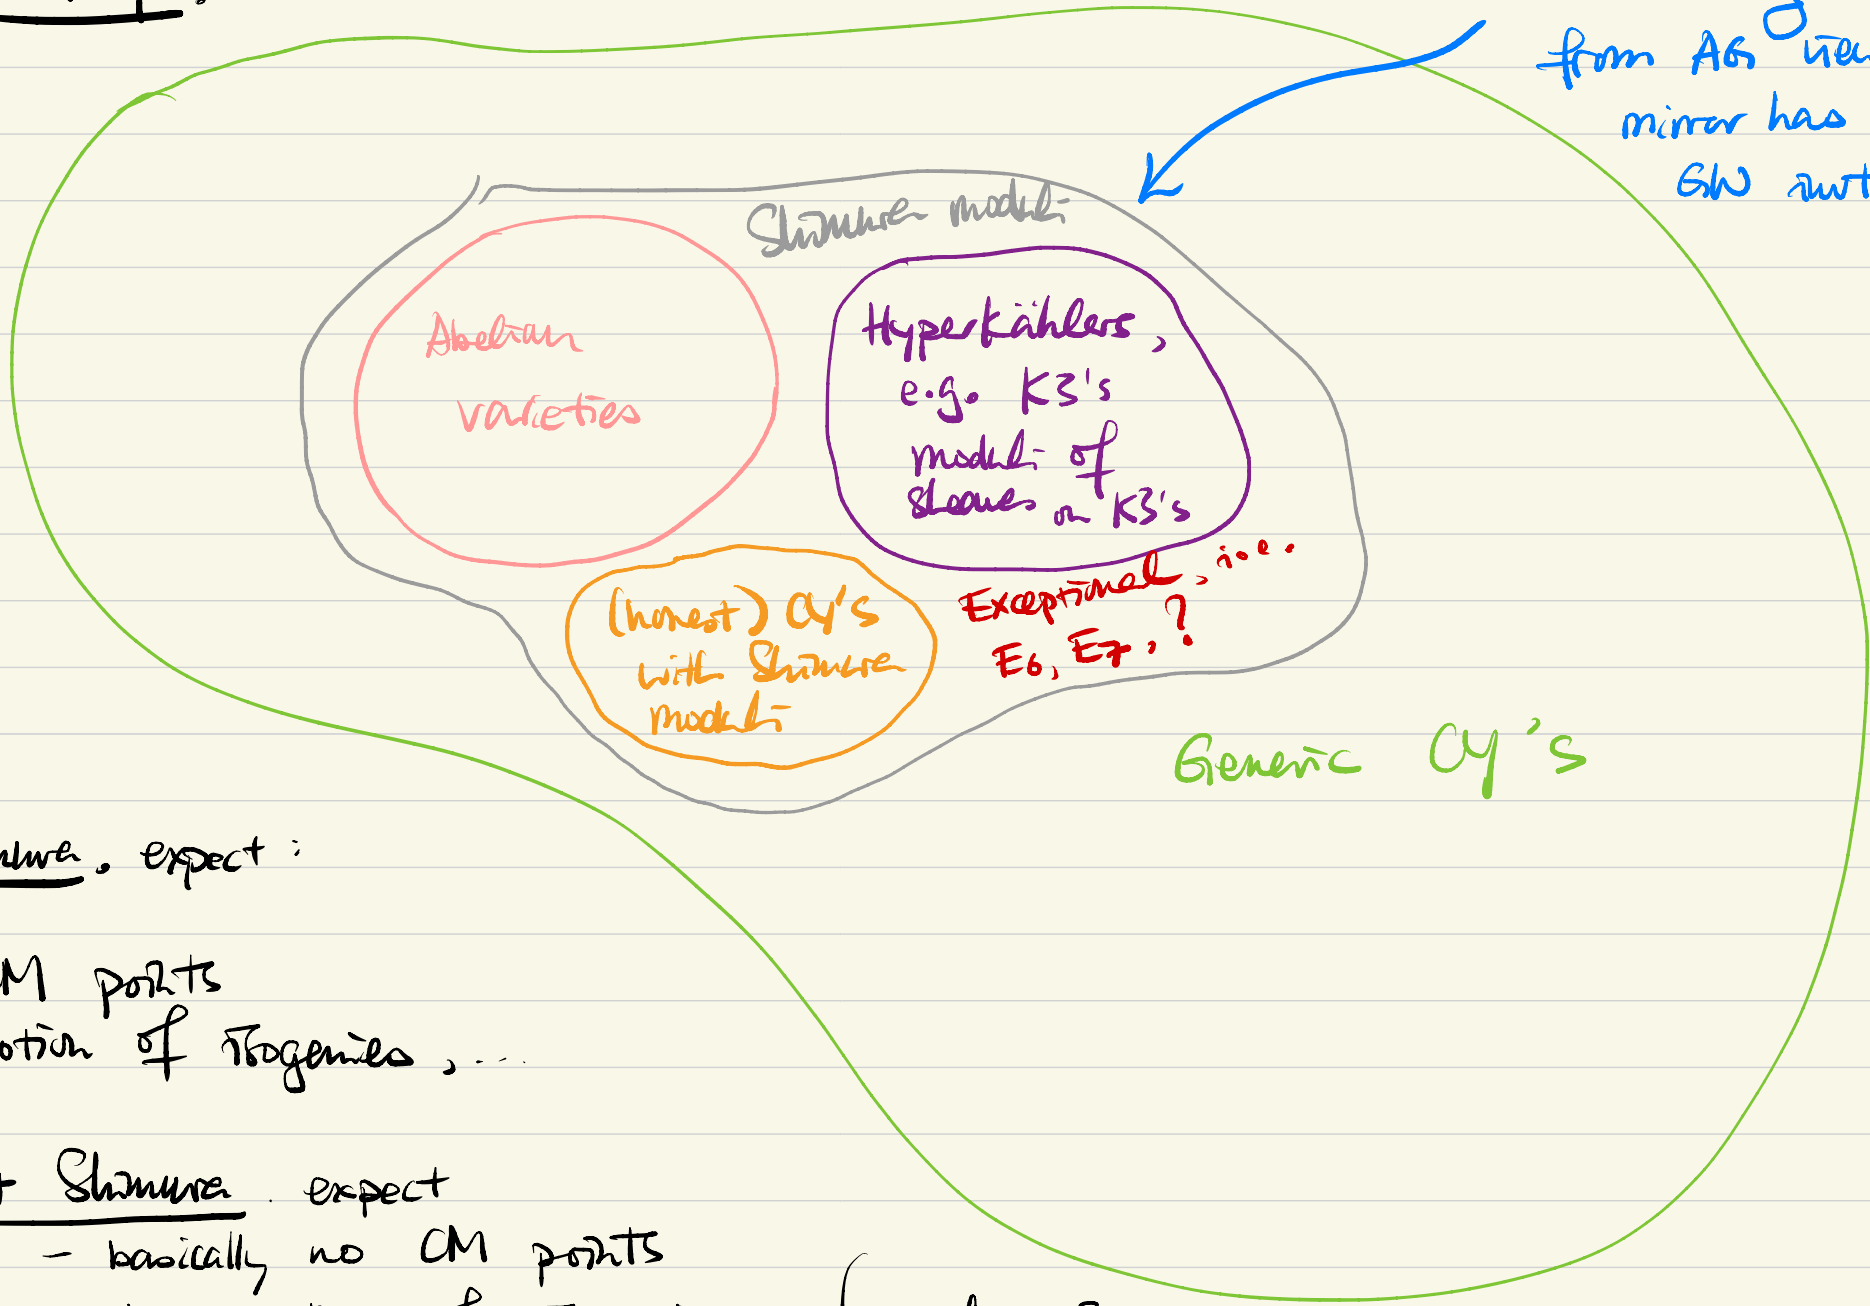 from AG view
mirror has
GW inv't
Shimura moduli
Abelian
varieties
Hyperkählers,
e.g. K3's
moduli of
sheaves on K3's
(honest) CY's
with Shimura
moduli
Exceptional, i.e.
E6, E7, ?
Generic CY's
expect:
M points
otion of isogenies, ...
Shimura. expect
- basically no CM points